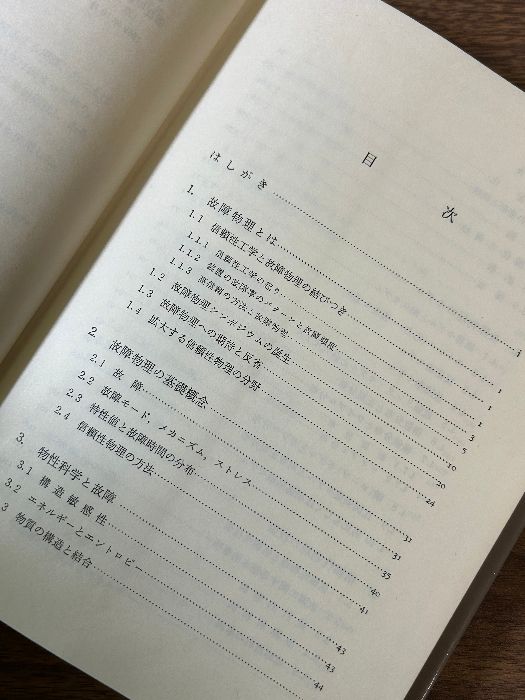 目次
はしがき……i
1. 故障物理とは……1
1.1 信頼性工学と故障物理の結びつき……1
1.1.1 信頼性工学の怒り……1
1.1.2 装置の故障率のパターンと故障機構……3
1.1.3 故障物理……5
1.2 故障物理シンポジウムの誕生……10
1.3 故障物理への期待と反省……20
1.4 拡大する信頼性物理の分野……24
2. 故障物理の基礎概念……31
2.1 故障……31
2.2 故障モード，メカニズム，ストレス……35
2.3 特性値と故障時間の分布……40
2.4 信頼性物理の方法……41
3. 物性科学と故障……43
3.1 構造敏感性……43
3.2 エネルギーとエントロピー……44
3 物質の構造と結合